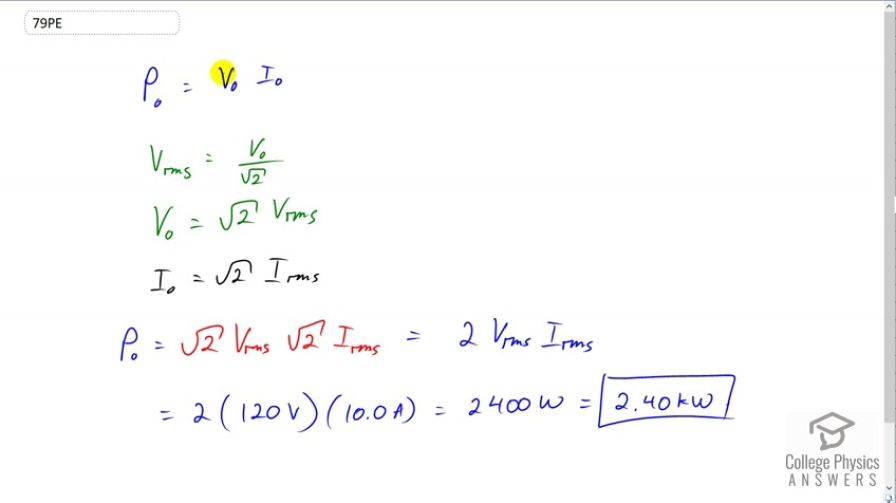 79PE
P₀ = V₀ I₀
Vrms = V₀/√2
V₀ = √2 Vrms
I₀ = √2 Irms
P₀ = √2 Vrms √2 Irms = 2 Vrms Irms
= 2 (120 V) (10.0 A) = 2400 W = 2.40 kW
College Physics
ANSWERS